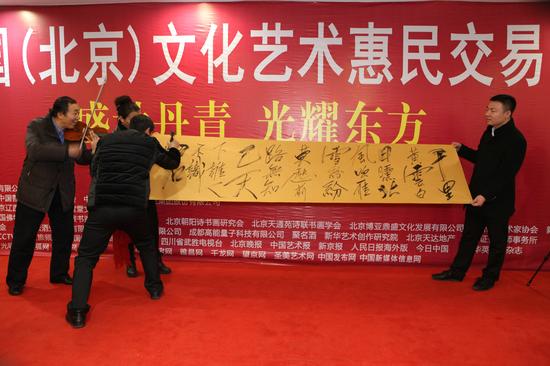 国（北京）文化艺术惠民交易
盛 丹青 光耀东方
千里
黄雲白
日曛北
風吹雁
雪紛紛
莫愁前
路無知
己天
下誰
不識
北京朝阳诗书画研究会 北京天通苑诗联书画学会 北京博亚鼎盛文化发展有限公司
限公司 成都高能量子科技有限公司 聚名酒 新华艺术创作研究院 北京天达地产
四川省武胜电视台 北京晚报 中国艺术报 新京报 人民日报海外版 今日中国
雅昌网 千龙网 望京网 圣美艺术网 中国发布网 中国新媒体信息网
术家协会
事务所
杂志